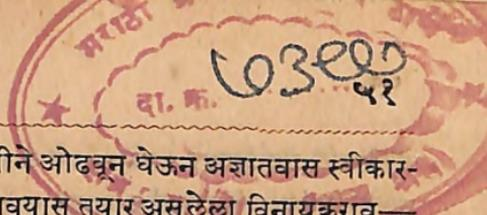 मराठी
दा. क्र.
५१
ीने ओढवून घेऊन अज्ञातवास स्वीकार-
वयास तयार असलेला विनायकराव—